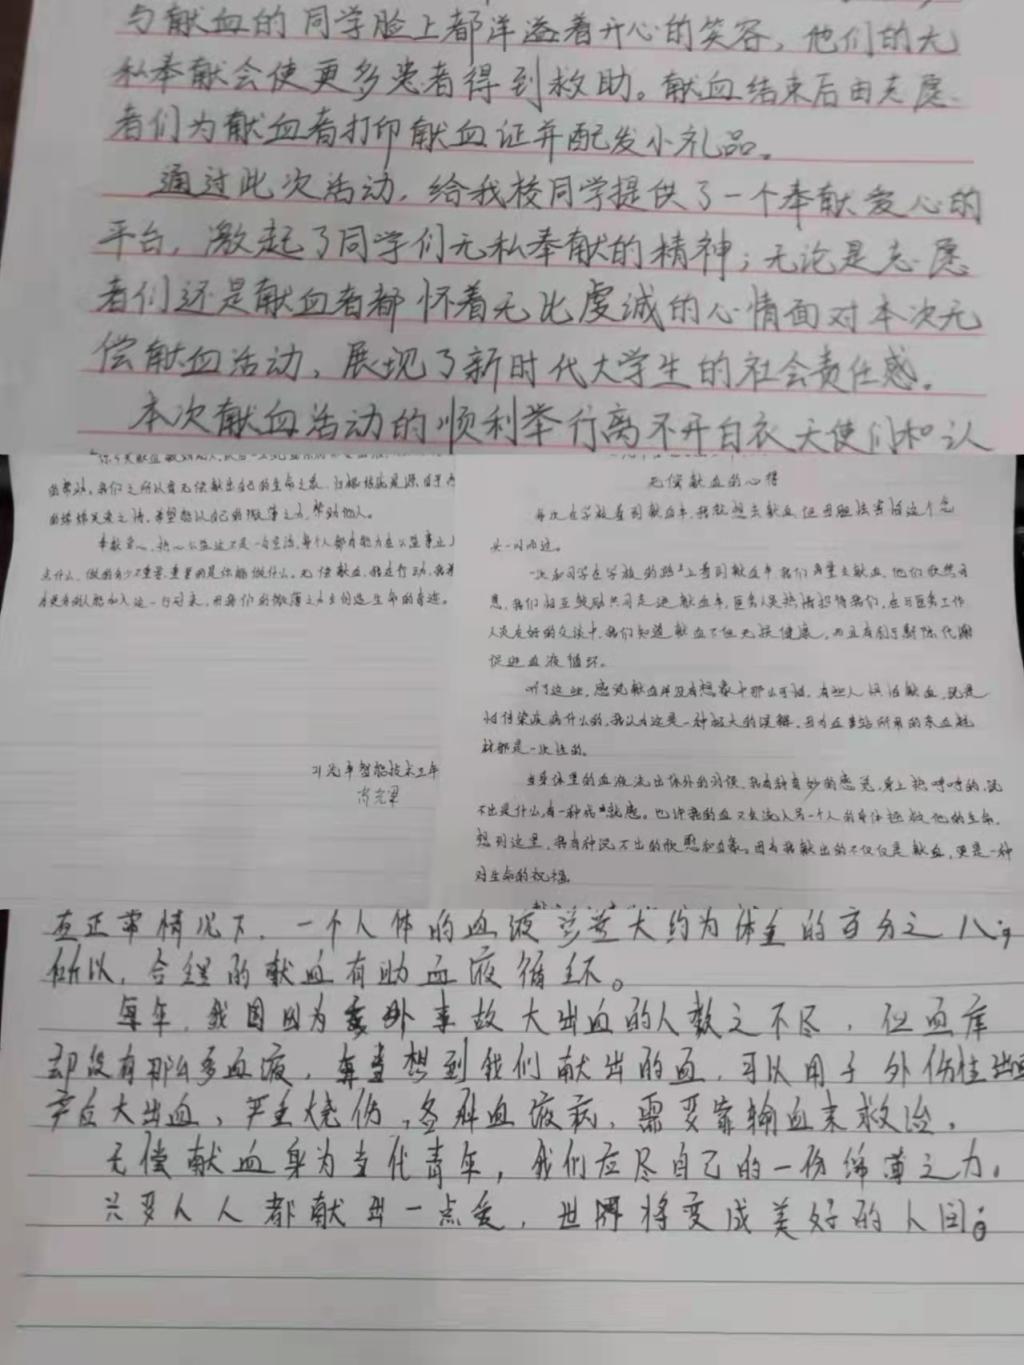 与献血的同学脸上都洋溢着开心的笑容，他们的无
私奉献会使更多患者得到救助。献血结束后由志愿
者们为献血者打印献血证并配发小礼品。
通过此次活动，给我校同学提供了一个奉献爱心的
平台，激起了同学们无私奉献的精神；无论是志愿
者们还是献血者都怀着无比虔诚的心情面对本次无
偿献血活动、展现了新时代大学生的社会责任感。
本次献血活动的顺利举行离不开白衣天使们和认
的帮助，我们之所以肯无偿献出自己的生命之液，归根结底是源自于
的绵绵关爱之情，希望能以自己的微薄之力，帮助他人。
奉献爱心，热心公益这不是一句空话，每个人都有能力在公益事业上
点什么，做的多少不重要，重要的是你能做什么。无偿献血，我在行动，我希
有更多的人能加入这一行动来，用我们的微薄之力去创造生命的奇迹。
智能技术
无偿献血的心得
每次在学校看到献血车，我就想去献血，但因胆怯害怕这个念
头一闪而过。
一次和同学在学校的路上看到献血车，我们商量去献血，他们欣然同
意，我们相互鼓励共同走进献血车，医务人员热情招待我们，在与医务工作
人员友好的交谈中，我们知道献血不但无损健康，而且有利于新陈代谢
促进血液循环。
听了这些，感觉献血并没有想象中那么可怕，有些人惧怕献血，说是
怕传染疾病什么的，我认为这是一种极大的误解，因为血站所用的采血耗
材都是一次性的。
当身体里的血液流出体外的时候，我有种奇妙的感觉，身上热呼呼的，说
不出是什么，有一种成就感。也许我的血又会流入另一个人的身体拯救他的生命，
想到这里，我有种说不出的欣慰和自豪。因为我献出的不仅仅是献血，更是一种
对生命的祝福。
在正常情况下，一个人体的血液总量大约为体重的百分之八，
所以，合理的献血有助血液循环。
每年，我国因为意外事故大出血的人数之不尽，但血库
却没有那么多血液，每当想到我们献出的血，可以用于外伤性出血
产后大出血、严重烧伤，各种血液病，需要靠输血来救治。
无偿献血身为当代青年，我们应尽自己的一份绵薄之力，
只要人人都献出一点爱，世界将变成美好的人间。